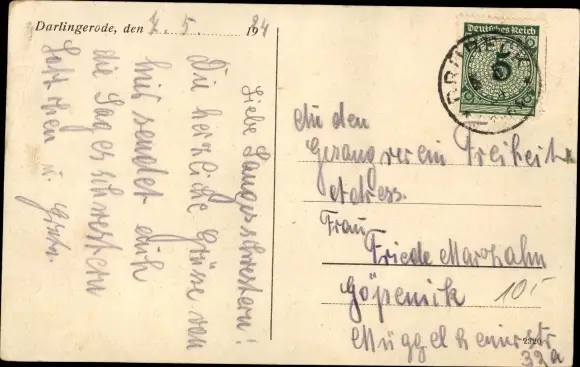 Darlingerode, den 7. 5. 1924
Liebe Sangesschwestern!
Die herzliche Grüsse von
hir sendet euch
die Sagesschwestern
Lottchen u.
Deutsches Reich
5
DRÜBECK
An den
Gesangverein Freiheit
Adress.
Frau
Friede Marzhahn
Göpenik
10-
Müggelheimerstr
32a
2320